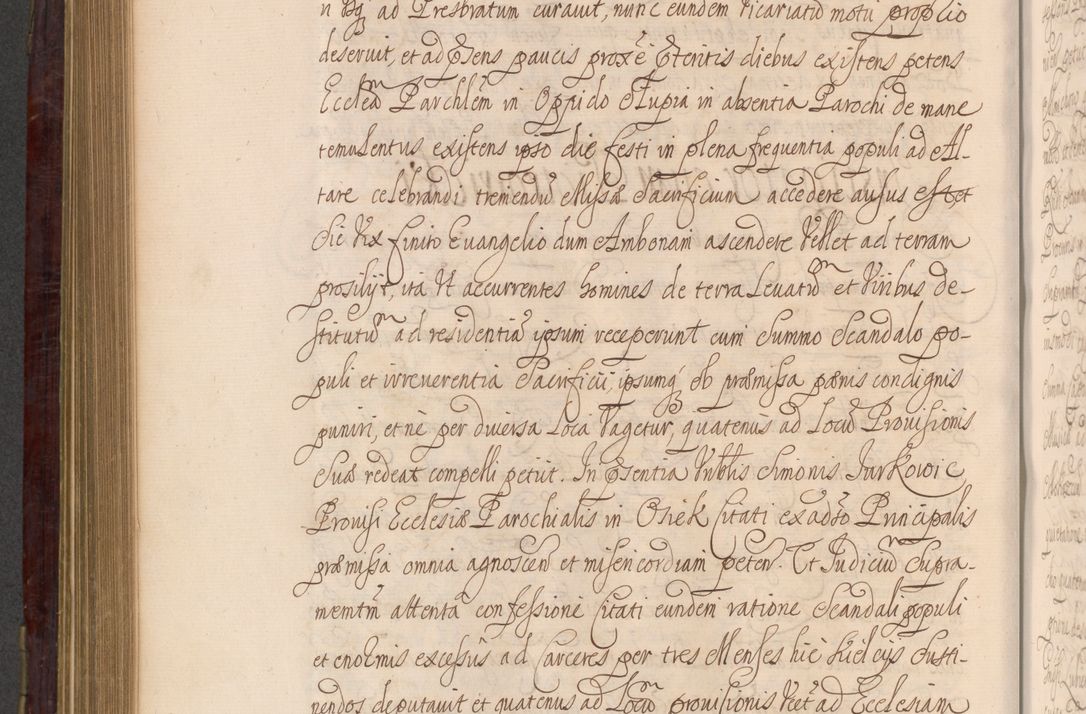 n Bq ad Presbratum curavit, nunc eundem Vicariatū motū proprio
deseruit, et ad pñsens paucis proxē pteritis diebus existens petens
Eccleã Parchlem in Oppido Słupia in absentia Parochi de mane
temulentus existens ipso die festi in plena frequentia populi ad Al-
tare celebrandi tremendū Missæ Sacrificium accedere ausus est et
Sic Vix finito Evangelio dum Ambonam ascendere Vellet ad terram
prosilijt, ità Ut accurrentes homines de terra Levatū et Viribus de-
stitutū ad residentiã ipsum receperunt cum Summo Scandalo po-
puli et irreverentia Sacrificii, ipsumq́ ob præmissa pænis condignis
puniri, et nè per diversa Loca Vagetur, quatenùs ad Locū Provisionis
Suæ redeat compelli petiit. In Psentia Vnblis Simonis Jurkowic
Provisi Ecclesiæ Parochialis in Osiek Citati ex adso Principalis
præmissa omnia agnoscen et misericordiam peten. Et Judiciū Supra-
memtm attentâ confessione Citati eundem ratione Scandali populi
et enormis excessus ad Carceres per tres Menses hic Kielcijs Susti-
nendos deputavit et quatenus ad Locū provisionis Vest ad Ecclesiam